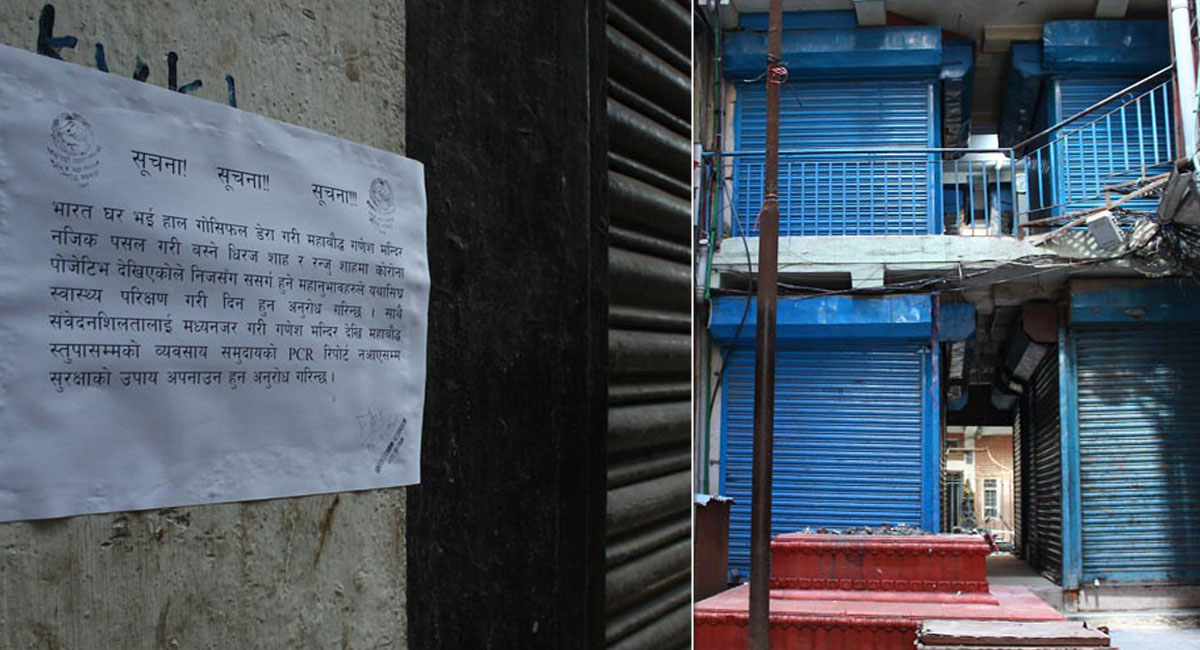 सूचना! सूचना!! सूचना!!!
भारत घर भई हाल गोसिफल डेरा गरी महाबौद्ध गणेश मन्दिर
नजिक पसल गरी बस्ने धिरज शाह र रन्जु शाहमा कोरोना
पोजेटिभ देखिएकोले निजसंग ससर्ग हुने महानुभावहरुले यथासिघ्र
स्वास्थ्य परिक्षण गरी दिन हुन अनुरोध गरिन्छ । साथै
संवेदनशिलतालाई मध्यनजर गरी गणेश मन्दिर देखि महाबौद्ध
स्तुपासम्मको व्यवसाय समुदायको PCR रिपोर्ट नआएसम्म
सुरक्षाको उपाय अपनाउन हुन अनुरोध गरिन्छ ।